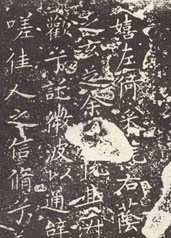 嬉左倚采旄右蔭
之玄芝余悅其淑
歡兮託微波以通辭
嗟佳人之信脩兮